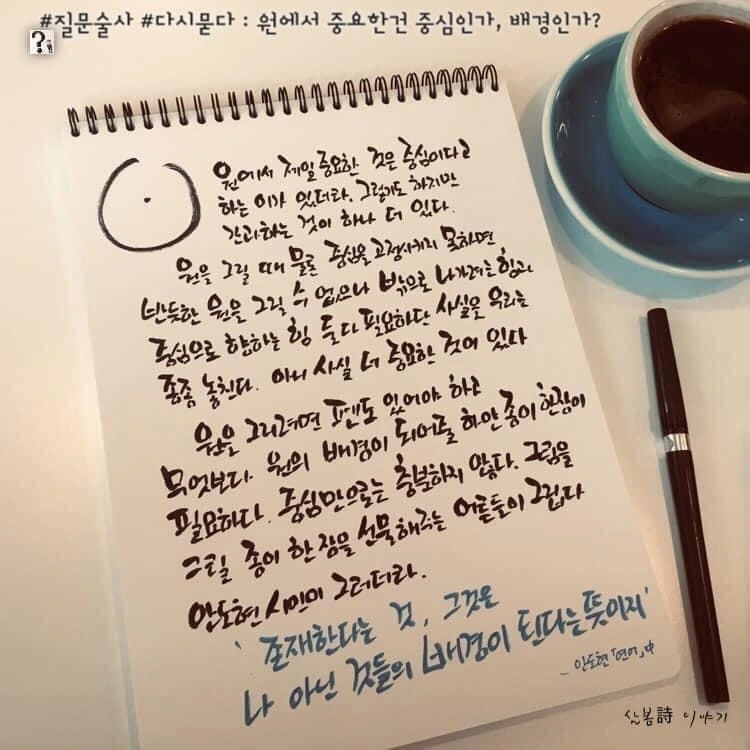 #질문술사 #다시묻다 : 원에서 중요한건 중심인가, 배경인가?
?
원에서 제일 중요한 것은 중심이다고
하는 이가 있더라. 그렇기도 하지만
간과하는 것이 하나 더 있다.
원을 그릴 때 물론 중심을 고정시키지 못하면
반듯한 원을 그릴 수 없으나 밖으로 나가려는 힘과
중심으로 향하는 힘 둘다 필요하단 사실을 우리는
종종 놓친다. 아니 사실 더 중요한 것이 있다
원을 그리려면 펜도 있어야 하고
무엇보다 원의 배경이 되어줄 하얀 종이 한장이
필요하다. 중심만으로는 충분하지 않다. 그림을
그릴 종이 한 장을 선물해주는 어른들이 그립다
안도현 시인이 그러더라.
'존재한다는 것, 그것은
나 아닌 것들의 배경이 된다는 뜻이지'
_ 안도현「연어」中
산봄詩 이야기